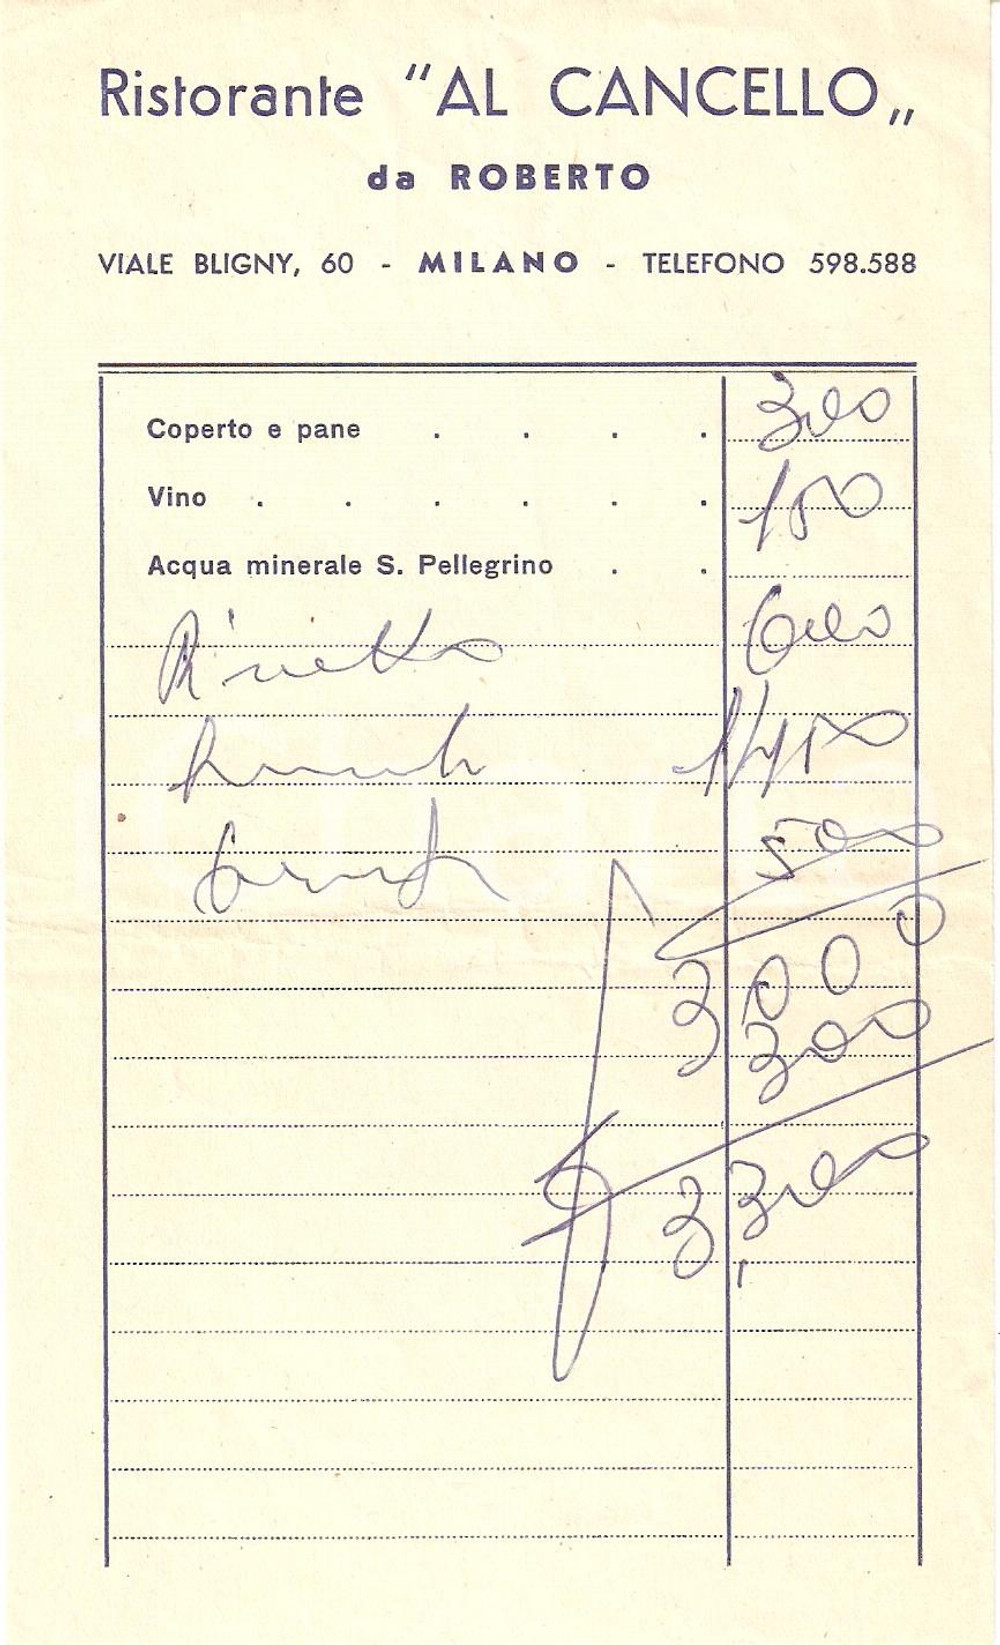 Ristorante "AL CANCELLO„
da ROBERTO
VIALE BLIGNY, 60 - MILANO - TELEFONO 598.588
Coperto e pane . . . . 300
Vino . . . . . . 150
Acqua minerale S. Pellegrino . .
600
1450
500
3000
300
3,300